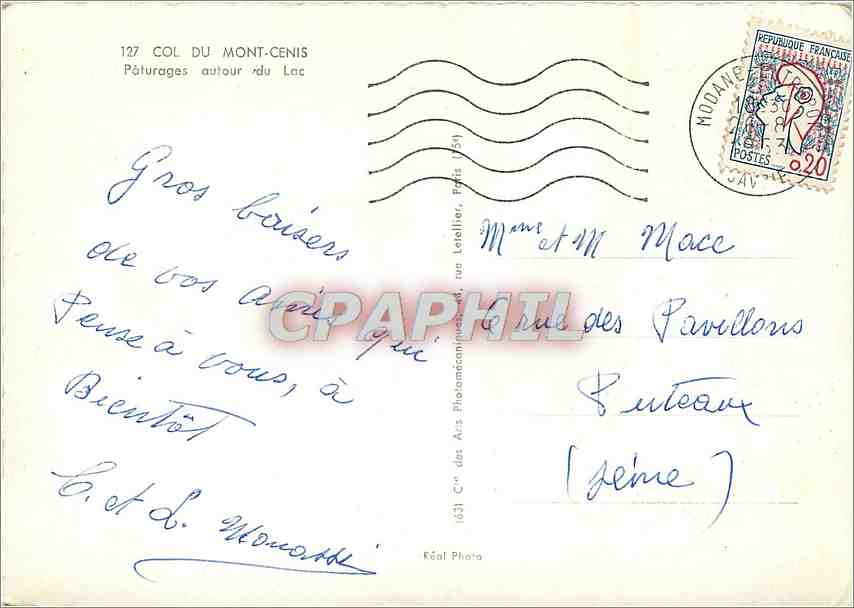 127 COL DU MONT-CENIS
Pâturages autour du Lac
Gros baisers
de vos amis qui
Pense à vous, à
Bientôt
C. et L.
REPUBLIQUE FRANÇAISE
POSTES
0.20
MODANE
Mme et M Mace
6 rue des Pavillons
Puteaux
(Seine)
CPARHIL
1631 Cie des Arts Photomécaniques, rue Letellier, Paris (15e)
Réal Photo